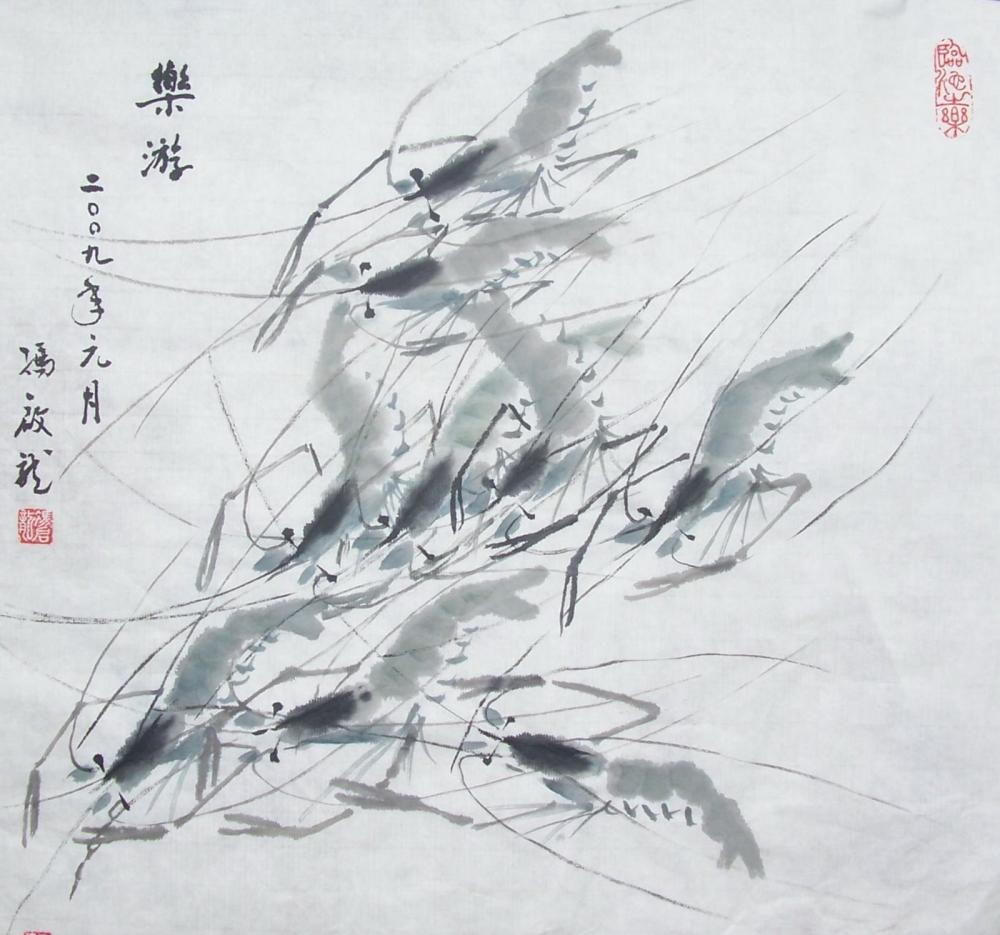 臨池樂
樂游
二〇〇九年元月
馮啟龍